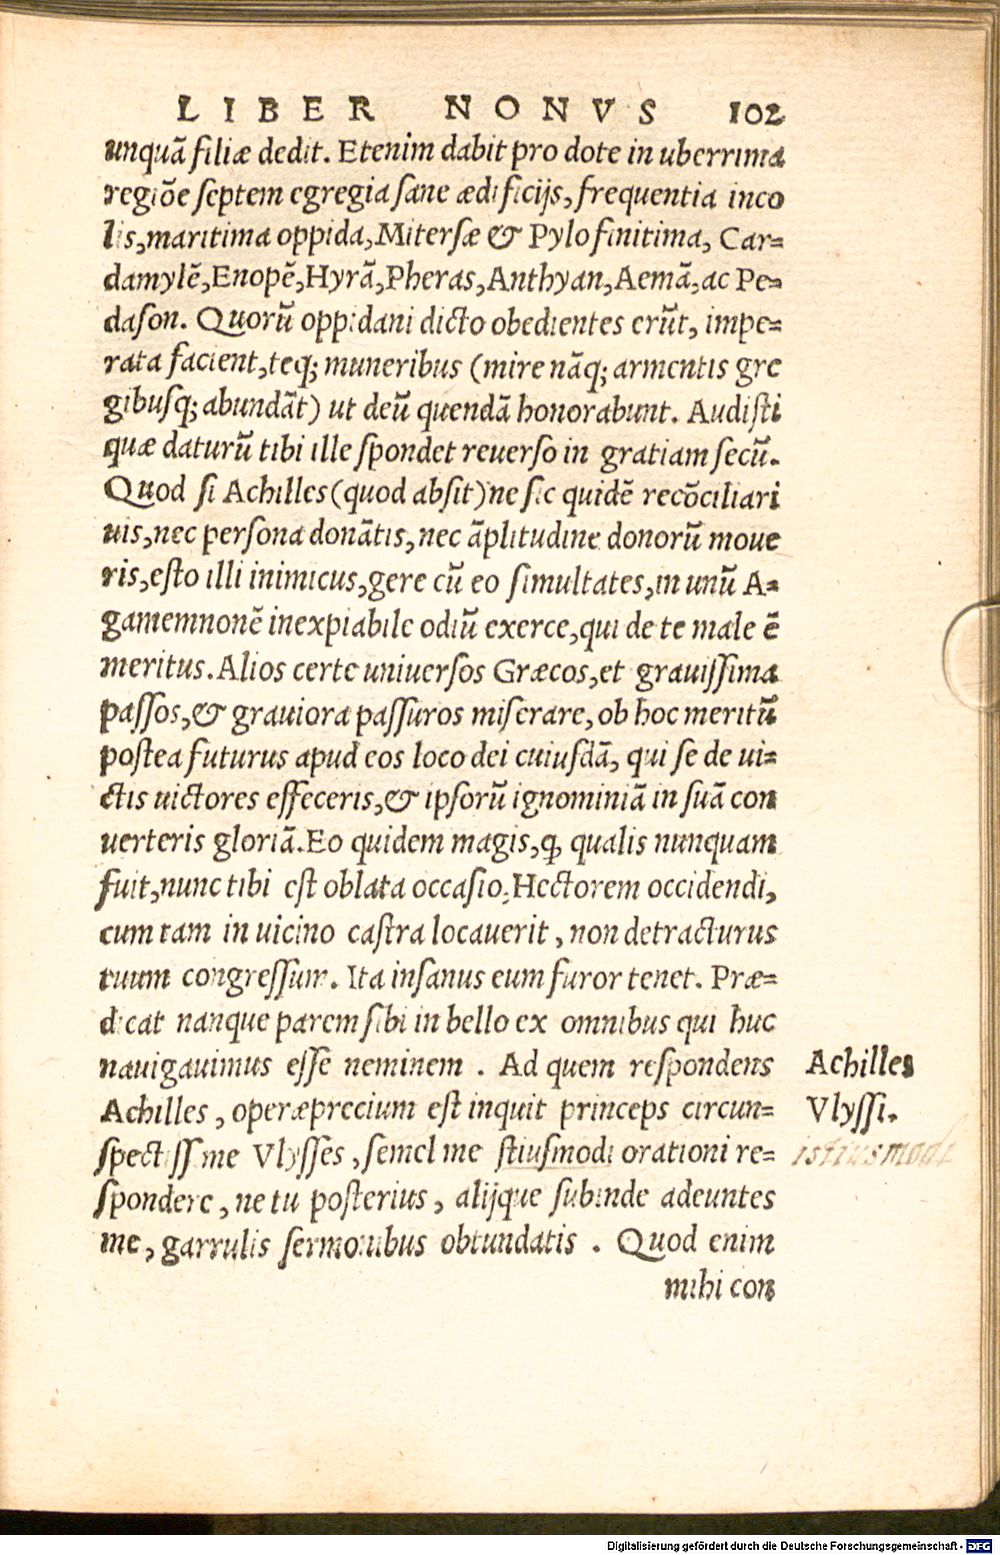 LIBER NONVS 102
unquā filiæ dedit. Etenim dabit pro dote in uberrima
regiōe ſeptem egregia ſane ædificijs, frequentia inco
lis, maritima oppida, Miterſæ & Pylo finitima, Car-
damylē, Enopē, Hyrā, Pheras, Anthyan, Aemā, ac Pe-
daſon. Quorū oppidani dicto obedientes erūt, impe-
rata facient, teq; muneribus (mire nāq; armentis gre
gibuſq; abundāt) ut deū quendā honorabunt. Audiſti
quæ daturū tibi ille ſpondet reuerſo in gratiam ſecū.
Quod ſi Achilles (quod abſit) ne ſic quidē recōciliari
uis, nec perſona donātis, nec āplitudine donorū moue
ris, eſto illi inimicus, gere cū eo ſimultates, in unū A-
gamemnonē inexpiabile odiū exerce, qui de te male ē
meritus. Alios certe uniuerſos Græcos, et grauiſſima
paſſos, & grauiora paſſuros miſerare, ob hoc meritū
poſtea futurus apud eos loco dei cuiuſdā, qui ſe de ui-
ctis uictores effeceris, & ipſorū ignominiā in ſuā con
uerteris gloriā. Eo quidem magis, ꝙ qualis nunquam
fuit, nunc tibi eſt oblata occaſio, Hectorem occidendi,
cum tam in uicino caſtra locauerit, non detracturus
tuum congreſſum. Ita inſanus eum furor tenet. Præ-
dicat nanque parem ſibi in bello ex omnibus qui huc
nauigauimus eſſe neminem. Ad quem reſpondens
Achilles
Achilles, operæprecium eſt inquit princeps circun-
Vlyſſi.
ſpectiſſime Vlyſſes, ſemel me ſtiuſmodi orationi re-
istiusmodi
ſpondere, ne tu poſterius, alijque ſubinde adeuntes
me, garrulis ſermonibus obtundatis. Quod enim
mihi con
Digitalisierung gefördert durch die Deutsche Forschungsgemeinschaft - DFG